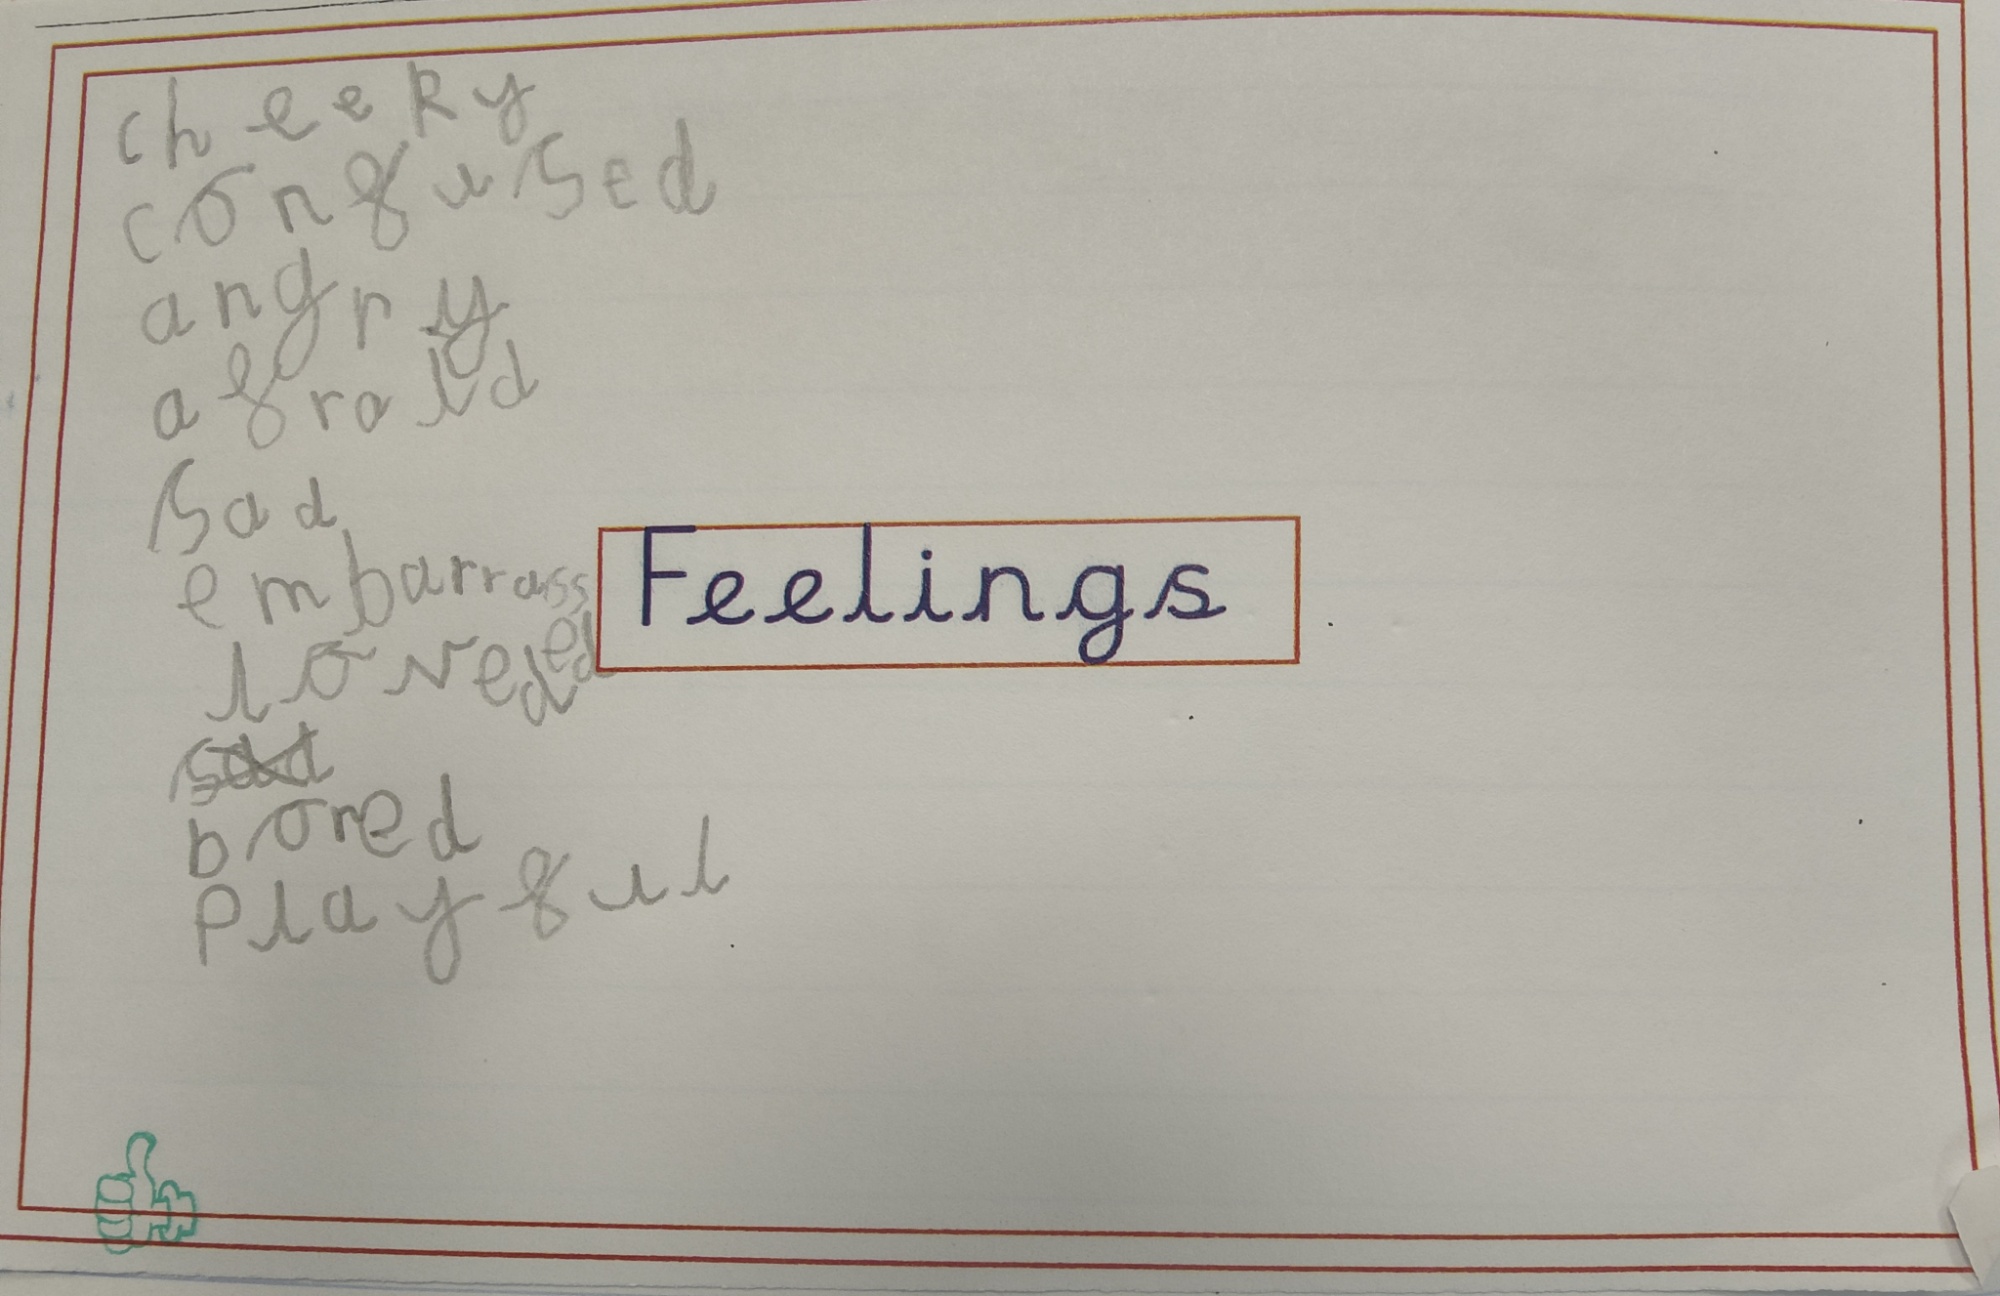 cheeky
confused
angry
afraid
sad
embarrassed
loved
sad
bored
playful
Feelings